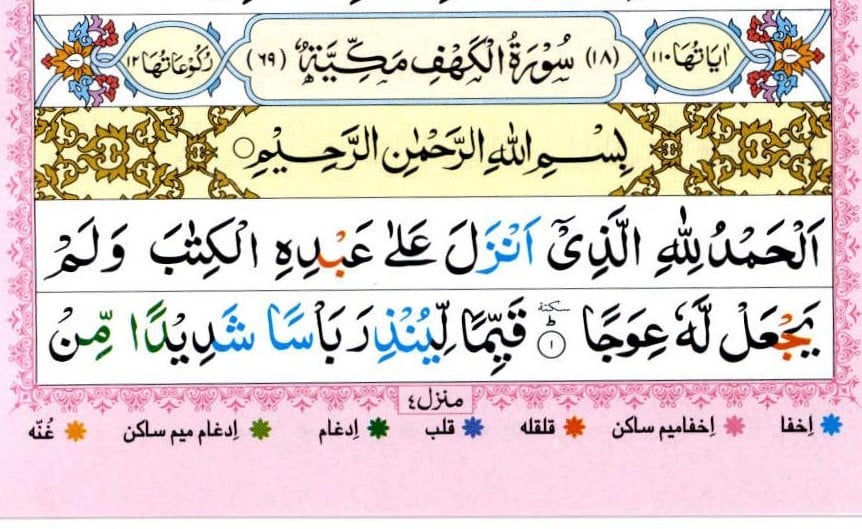 اٰیَاتُهَا ۱۱۰ (۱۸) سُوْرَةُ الْكَهْفِ مَكِّیَّةٌ (۶۹) رُكُوْعَاتُهَا ۱۲
بِسْمِ اللهِ الرَّحْمٰنِ الرَّحِیْمِ ○
اَلْحَمْدُ لِلّٰهِ الَّذِیْۤ اَنْزَلَ عَلٰی عَبْدِهِ الْكِتٰبَ وَ لَمْ
یَجْعَلْ لَّهٗ عِوَجًا ؕ ﴿۱﴾ سكتة قَیِّمًا لِّیُنْذِرَ بَاْسًا شَدِیْدًا مِّنْ
منزل ۴
اِخفا اِخفامیم ساكن قلقله قلب اِدغام اِدغام میم ساكن غُنّه